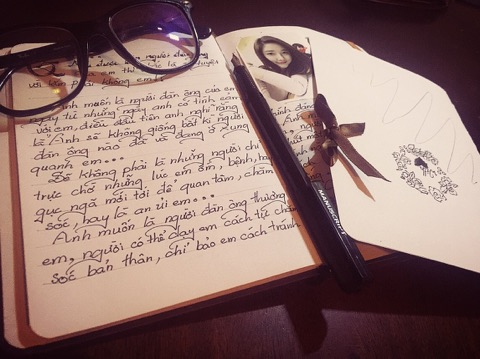 được người
em thì là
với bản phải không em
Anh muốn là người đàn ông của em
ngay từ những ngày anh có tình cảm
với em, điều đầu tiên anh nghĩ rằng
là "Anh sẽ không giống bất kì người
đàn ông nào đã và đang ở xung
quanh em...
Để không phải là những người chỉ
trực chờ những lúc em ốm, bệnh, hay
gục ngã mới tới để quan tâm, chăm
sóc, hay là an ủi em...
Anh muốn là người đàn ông thương
em, người có thể dạy em cách tự chăm
sóc bản thân, chỉ bảo em cách tránh
MANUSCRIPT